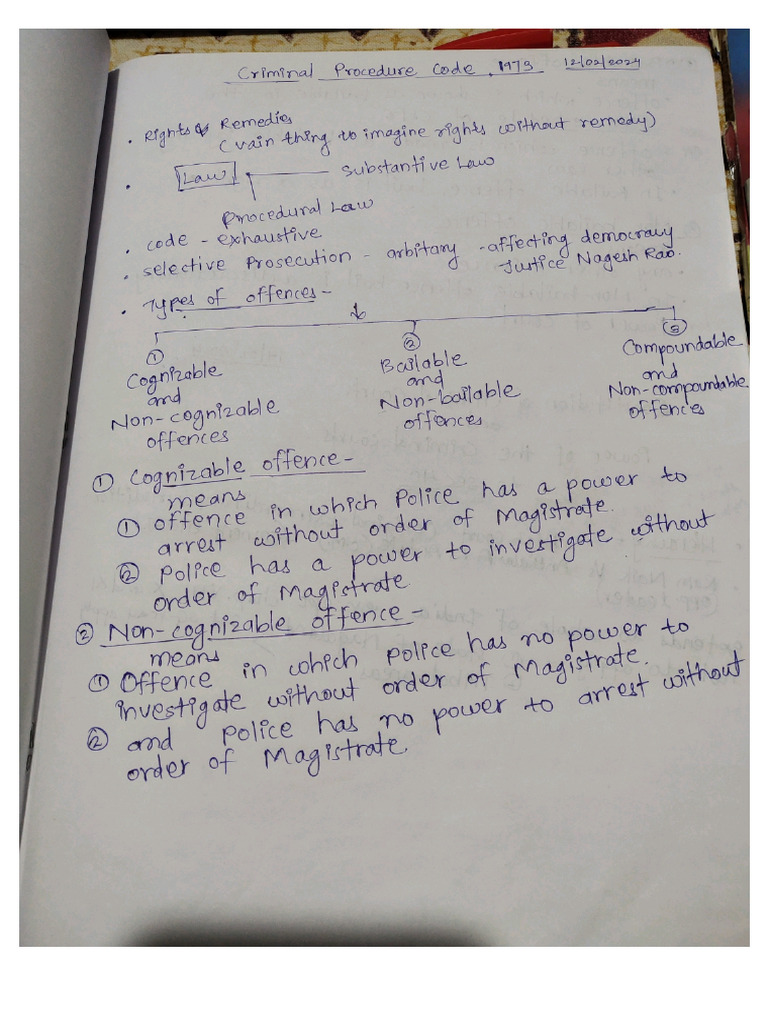 Criminal Procedure Code, 1973 12/02/2024
. Rights & Remedies
(vain thing to imagine rights without remedy)
. Law Substantive Law
Procedural Law
. code - exhaustive
. selective Prosecution - arbitary - affecting democracy
Justice Nagesh Rao.
. Types of offences -
① ② ③
Cognizable and Non-cognizable offences
Bailable and Non-bailable offences
Compoundable and Non-compoundable offences
① Cognizable offence -
means
① offence in which Police has a power to
arrest without order of Magistrate.
② Police has a power to investigate without
order of Magistrate
② Non-cognizable offence -
means
① Offence in which police has no power to
investigate without order of Magistrate.
② and police has no power to arrest without
order of Magistrate.